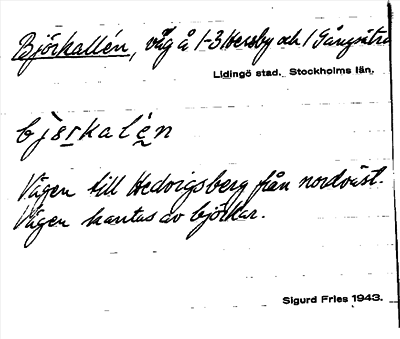 Björkallén, väg å 1-3 Hersby och 1 Gångsätra
Lidingö stad. Stockholms län.
bjœrkalén
Vägen till Hedvigsberg från nordväst.
Vägen kantas av björkar.
Sigurd Fries 1943.